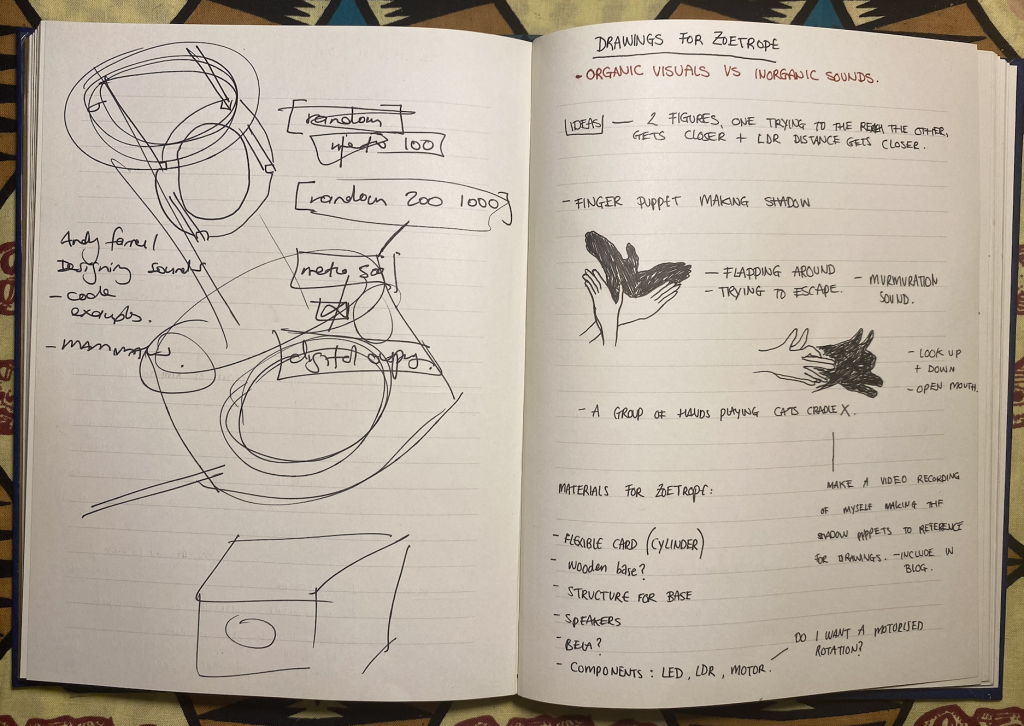 random
metro 100
random 200 1000
Andy farrel
Designing sounds
- code
examples.
metro 500
DRAWINGS FOR ZOETROPE
• ORGANIC VISUALS VS INORGANIC SOUNDS.
IDEAS — 2 FIGURES, ONE TRYING TO THE REACH THE OTHER,
GETS CLOSER + LDR DISTANCE GETS CLOSER.
- FINGER PUPPET MAKING SHADOW
— FLAPPING AROUND
— TRYING TO ESCAPE.
— MURMURATION
SOUND.
- LOOK UP
+ DOWN
- OPEN MOUTH.
- A GROUP OF HANDS PLAYING CATS CRADLE X.
MAKE A VIDEO RECORDING
OF MYSELF MAKING THE
SHADOW PUPPETS TO REFERENCE
FOR DRAWINGS. - INCLUDE IN
BLOG.
MATERIALS FOR ZOETROPE:
- FLEXIBLE CARD (CYLINDER)
- WOODEN base?
- STRUCTURE FOR BASE
- SPEAKERS
- BELA?
- COMPONENTS: LED, LDR, MOTOR.
DO I WANT A MOTORISED
ROTATION?